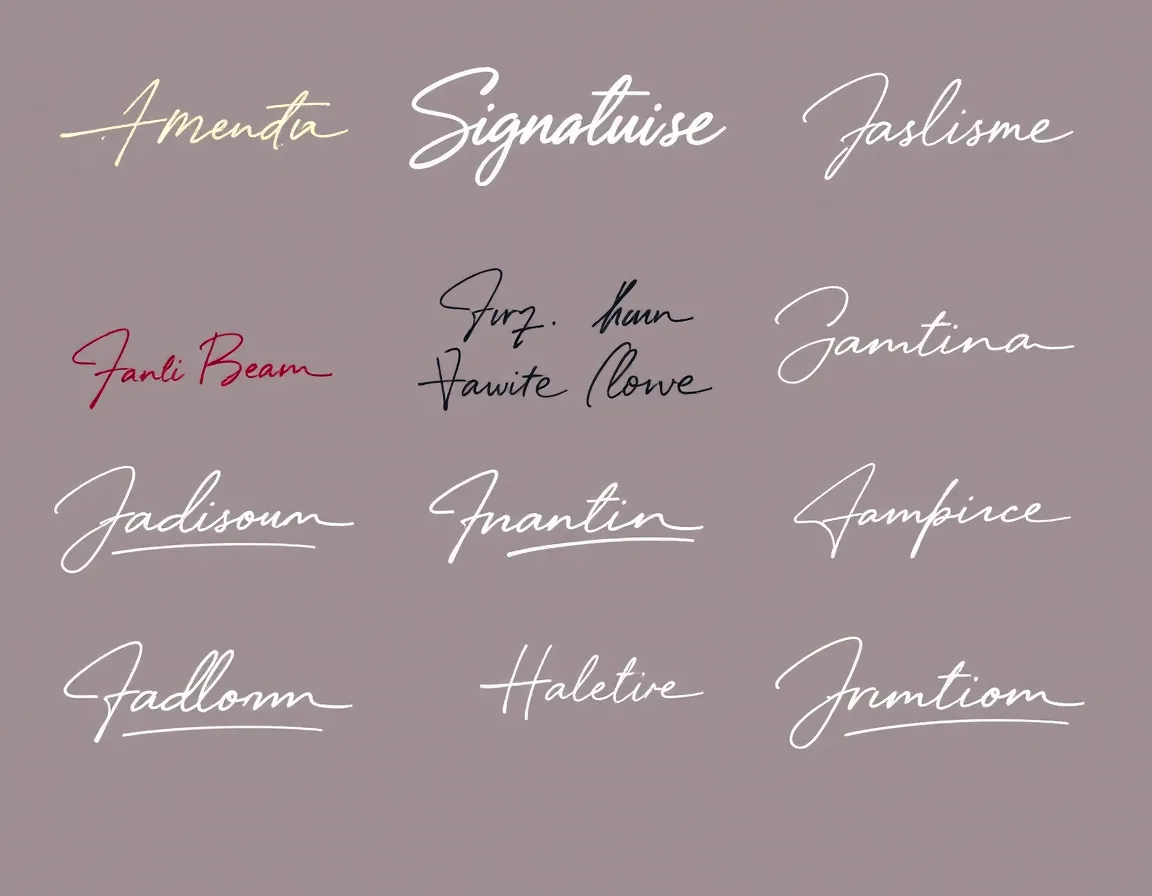 Amendia
Signatuise
Jaslisme
Fanli Beam
Jurz. hun
Fawite Clowe
Gamtina
Jadisoum
Fnantin
Aampirce
Fadlornn
Haletire
Jrumtiom